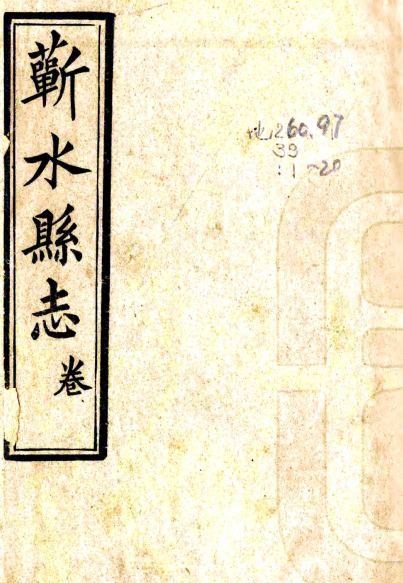 蘄水縣志卷
地260.97
39
:1~20